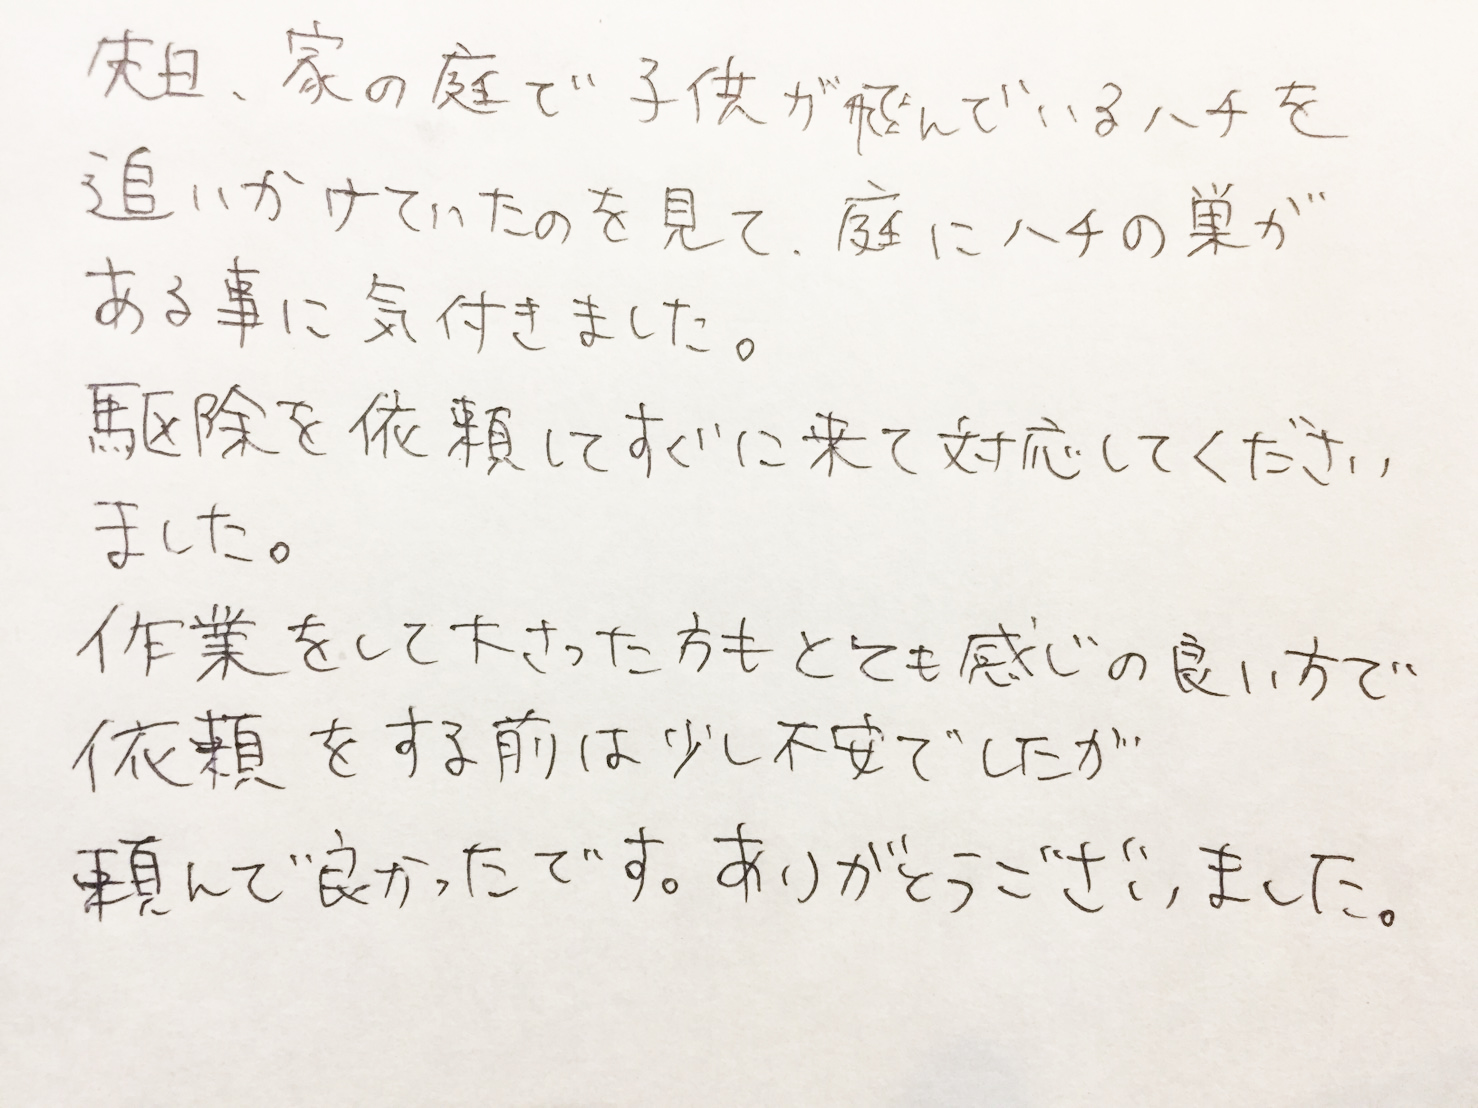 先日、家の庭で子供が飛んでいるハチを
追いかけていたのを見て、庭にハチの巣が
ある事に気付きました。
駆除を依頼してすぐに来て対応してください
ました。
作業をして下さった方もとても感じの良い方で
依頼をする前は少し不安でしたが
頼んで良かったです。ありがとうございました。